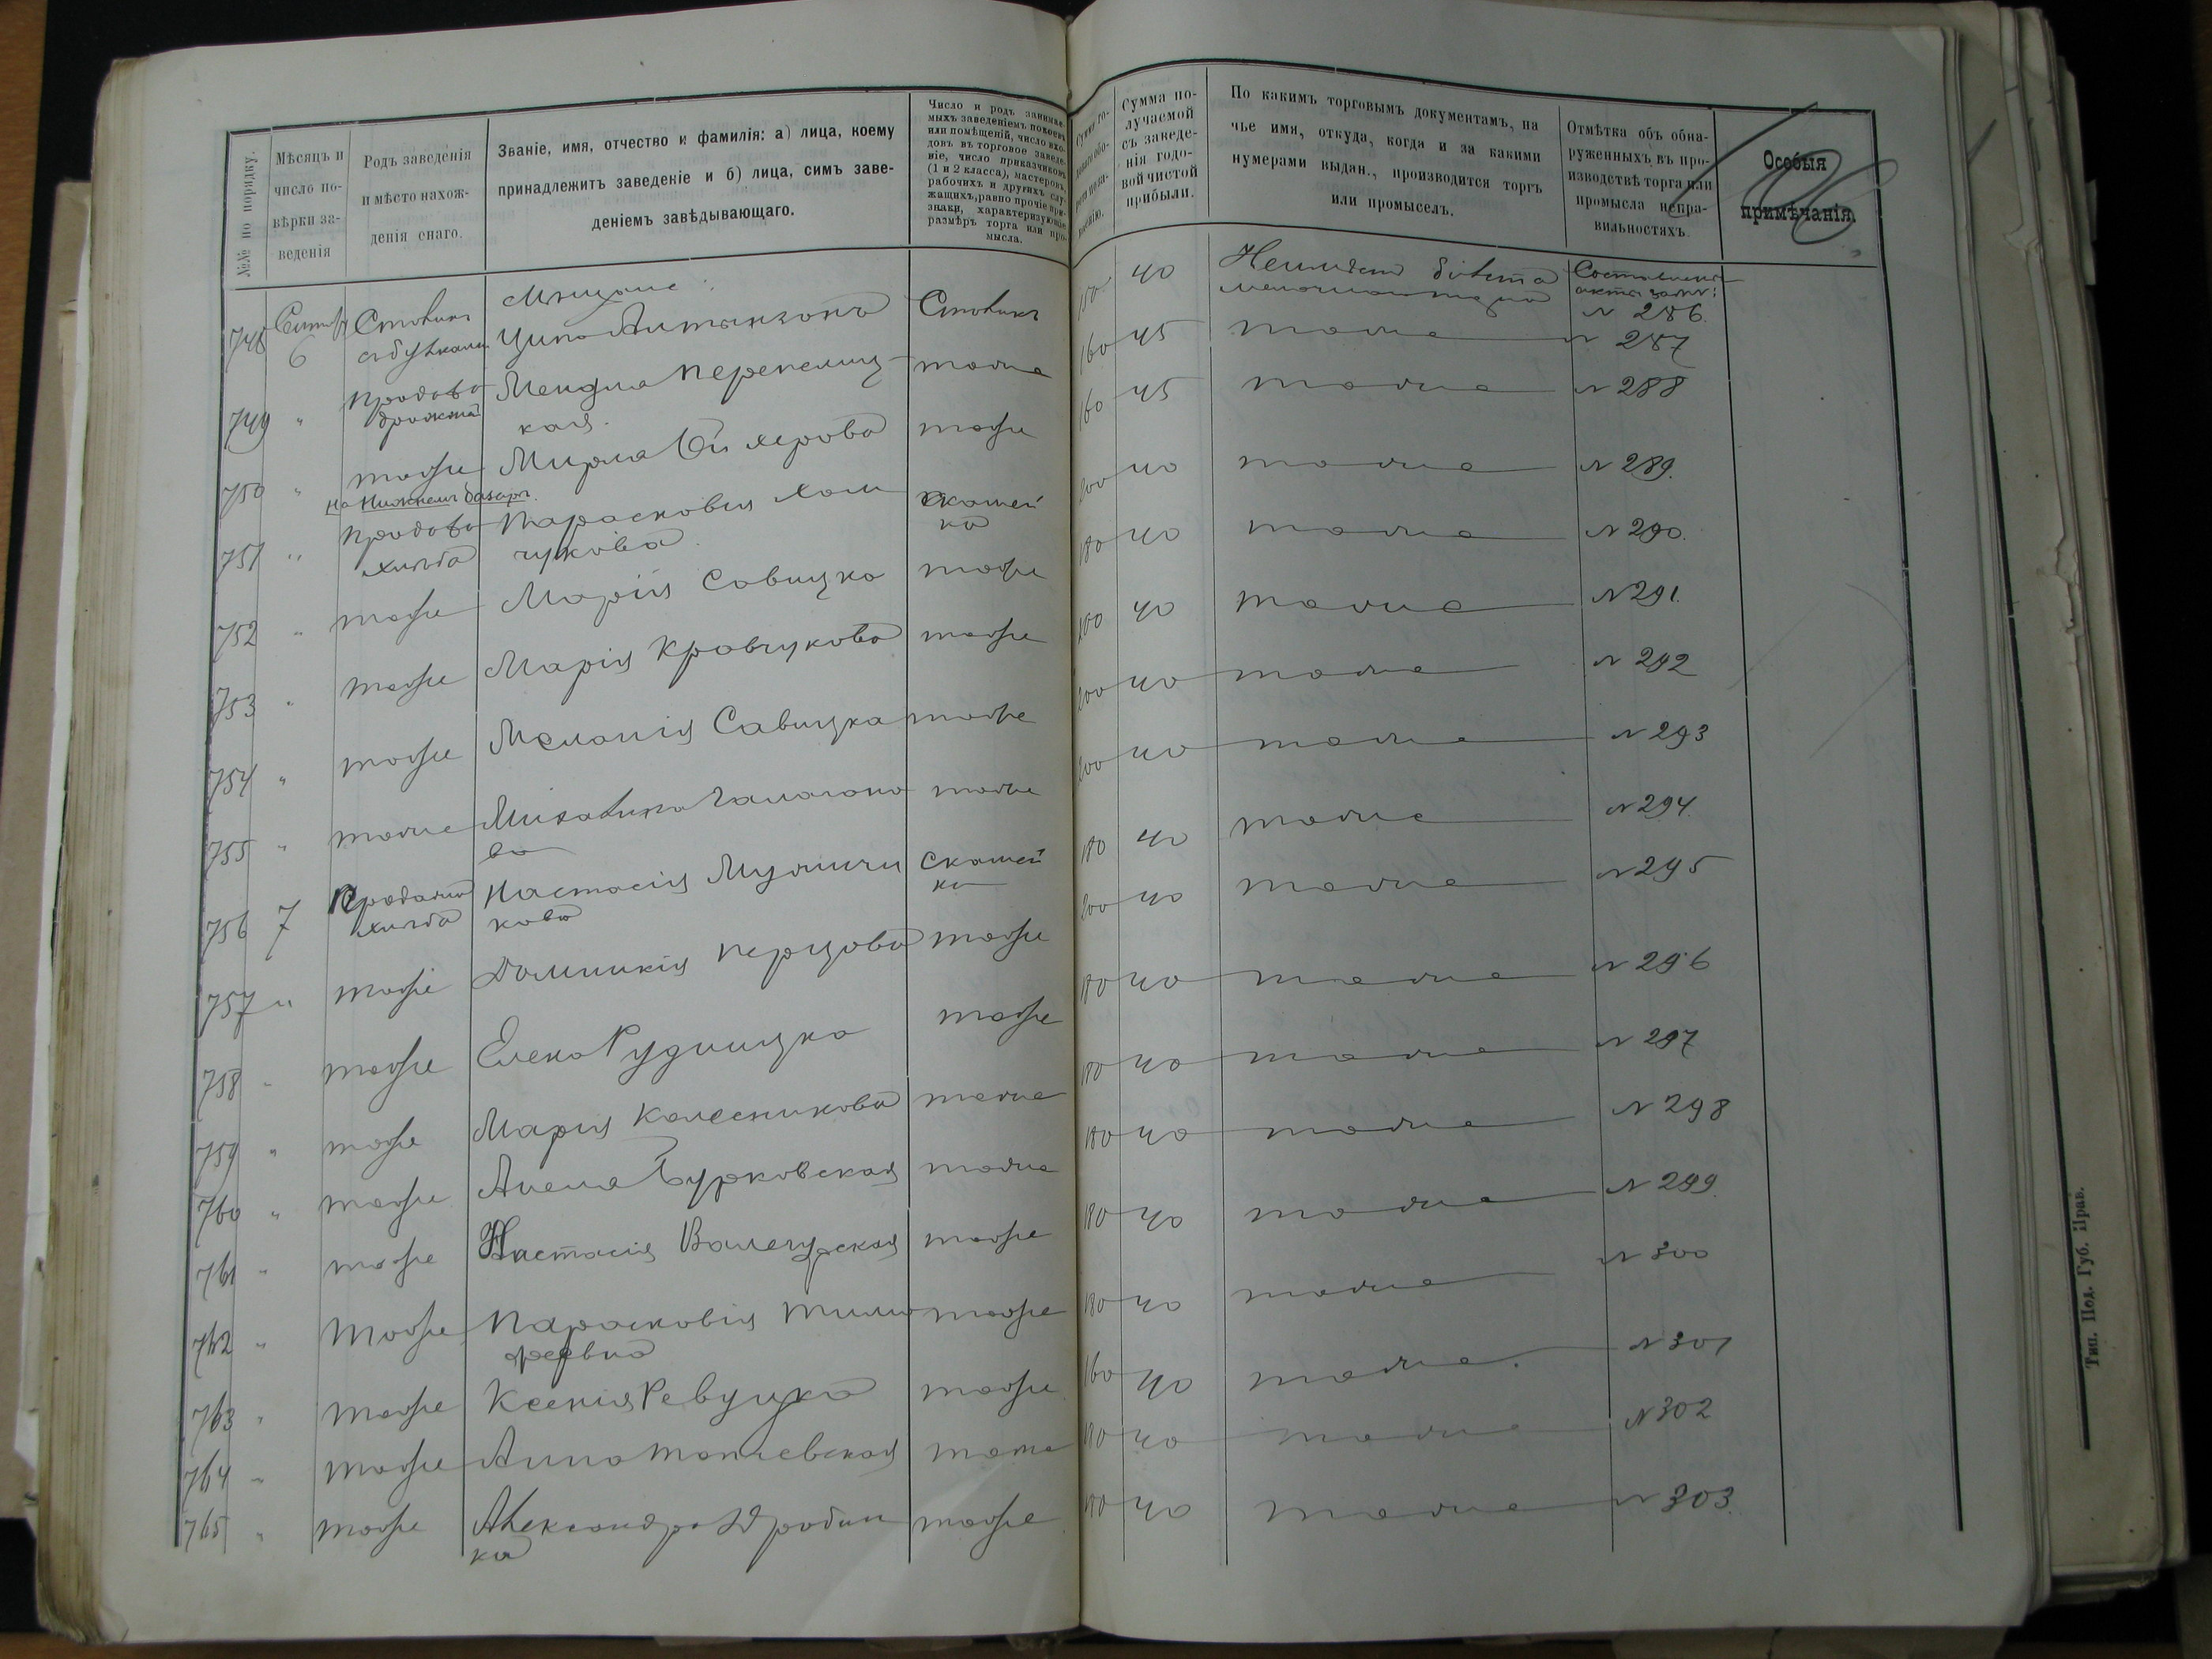 №№ по порядку.
Мѣсяцъ и число повѣрки заведенія
Родъ заведенія и мѣсто нахожденія онаго.
Званіе, имя, отчество и фамилія: а) лица, коему
принадлежитъ заведеніе и б) лица, симъ заве-
деніемъ завѣдывающаго.
Число и родъ занимае-
мыхъ заведеніемъ покоевъ
или помѣщеній, число вхо-
довъ въ торговое заведе-
ніе, число приказчиковъ
(1 и 2 класса), мастеровъ,
рабочихъ и другихъ слу-
жащихъ, равно прочіе при-
знаки, характеризующіе
размѣръ торга или про-
мысла.
Сумма по-
лучаемой
съ заведе-
нія годо-
вой чистой
прибыли.
По какимъ торговымъ документамъ, на
чье имя, откуда, когда и за какими
нумерами выдан., производится торгъ
или промыселъ.
Отмѣтка объ обна-
руженныхъ въ про-
изводствѣ торга или
промысла непра-
вильностяхъ.
Особыя
примѣчанія.
748 6 Столикъ Столикъ 150 40 № 286.
749 " Мендля Перепелиц- тоже 160 45 тоже № 287
кая.
750 " тоже Мирла тоже 160 45 тоже № 288
на Нижнемъ базарѣ.
751 " Продажа Парасковія Хом скамей 200 40 тоже № 289.
хлѣба чукова ка
752 " тоже Марія Савицка тоже 180 40 тоже № 290.
753 " тоже Марія Кравчукова тоже 200 40 тоже № 291.
754 " тоже Меланія Савицка тоже 200 40 тоже № 292
755 " тоже тоже 200 40 тоже № 293
ва
756 7 Продажа Настасія скамей 180 40 тоже № 294.
хлѣба кова ка
757 " тоже Доминикія Перцова тоже 200 40 тоже № 295
758 " тоже Елена Рудницка тоже 180 40 тоже № 296
759 " тоже Марія Колесникова тоже 180 40 тоже № 297
760 " тоже Бурковская тоже 180 40 тоже № 298
761 " тоже Настасія тоже 180 40 тоже № 299.
762 " тоже Парасковія Тимо тоже 180 40 тоже № 300
феевна
763 " тоже Ксенія Ревуцка тоже 160 40 тоже. № 301
764 " тоже Анна тоже 180 40 тоже № 302
765 " тоже Александра Дробин тоже 180 40 тоже № 303.
ка
Тип. Под. Губ. Прав.